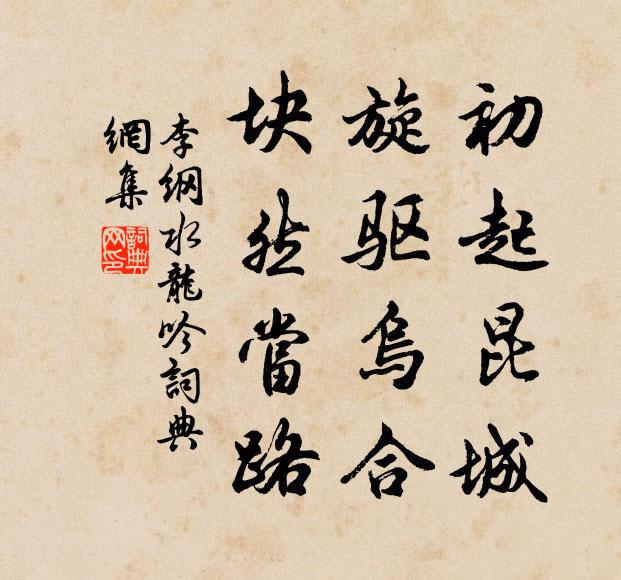 初起昆城
旋驱乌合
块然當路
李纲水龍吟詞典
網集
詞典
网印